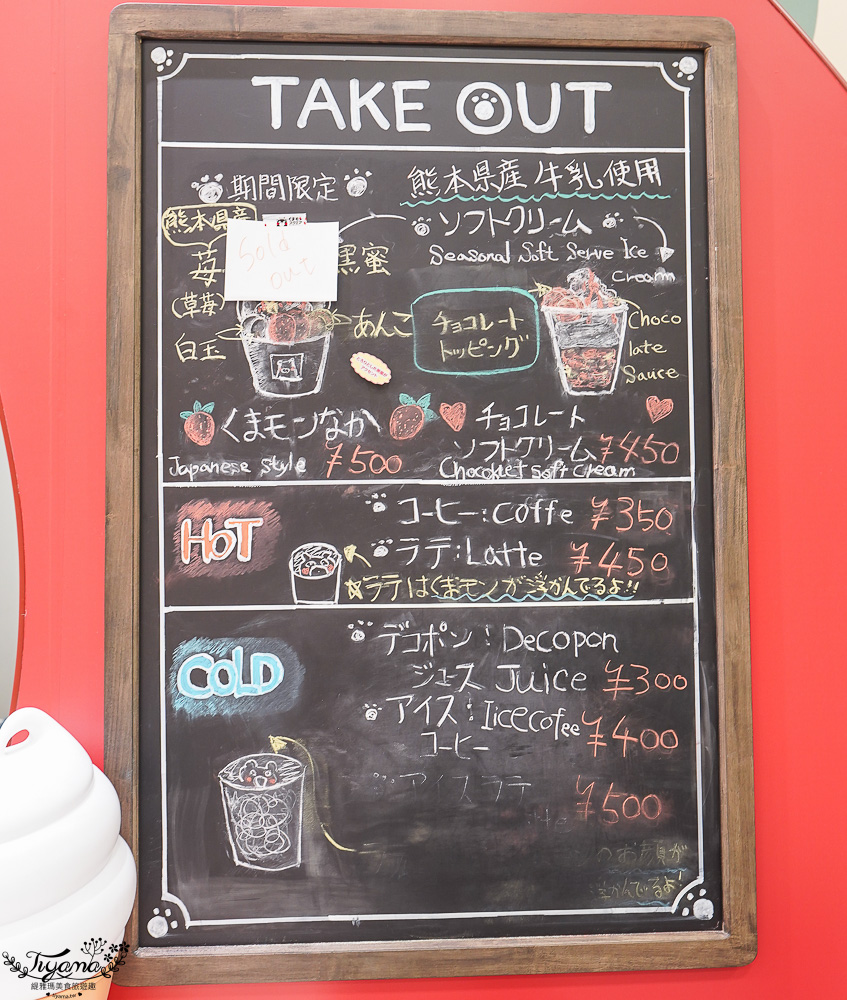 TAKE OUT
期間限定
熊本県産牛乳使用
熊本県産
ソフトクリーム
Seasonal Soft Serve Ice
Cream
Sold
out
苺
黒蜜
(草苺)
あんこ
白玉
チョコレート
トッピング
Choco
late
Sauce
くまモンなか
Japanese style ¥500
チョコレート
ソフトクリーム ¥450
Chocoket soft cream
HOT
コーヒー:Coffe ¥350
ラテ:Latte ¥450
☆ラテはくまモンが浮かんでるよ!!
COLD
デコポン:Decopon
ジュース Juice ¥300
アイス:Iicecofee ¥400
コーヒー
アイスラテ ¥500
のお顔が
浮かんでるよ!
Tiyama
緹雅瑪美食旅遊趣
tiyama.tw